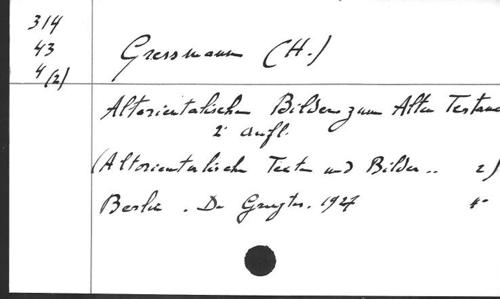 314
43
4 (2)
Gressmann (H.)
Altorientalischen Bilder zum Alten Testame
2e aufl.
(Altorientalische Texte und Bilder .. 2)
Berlin . De Gruyter . 1927 4°